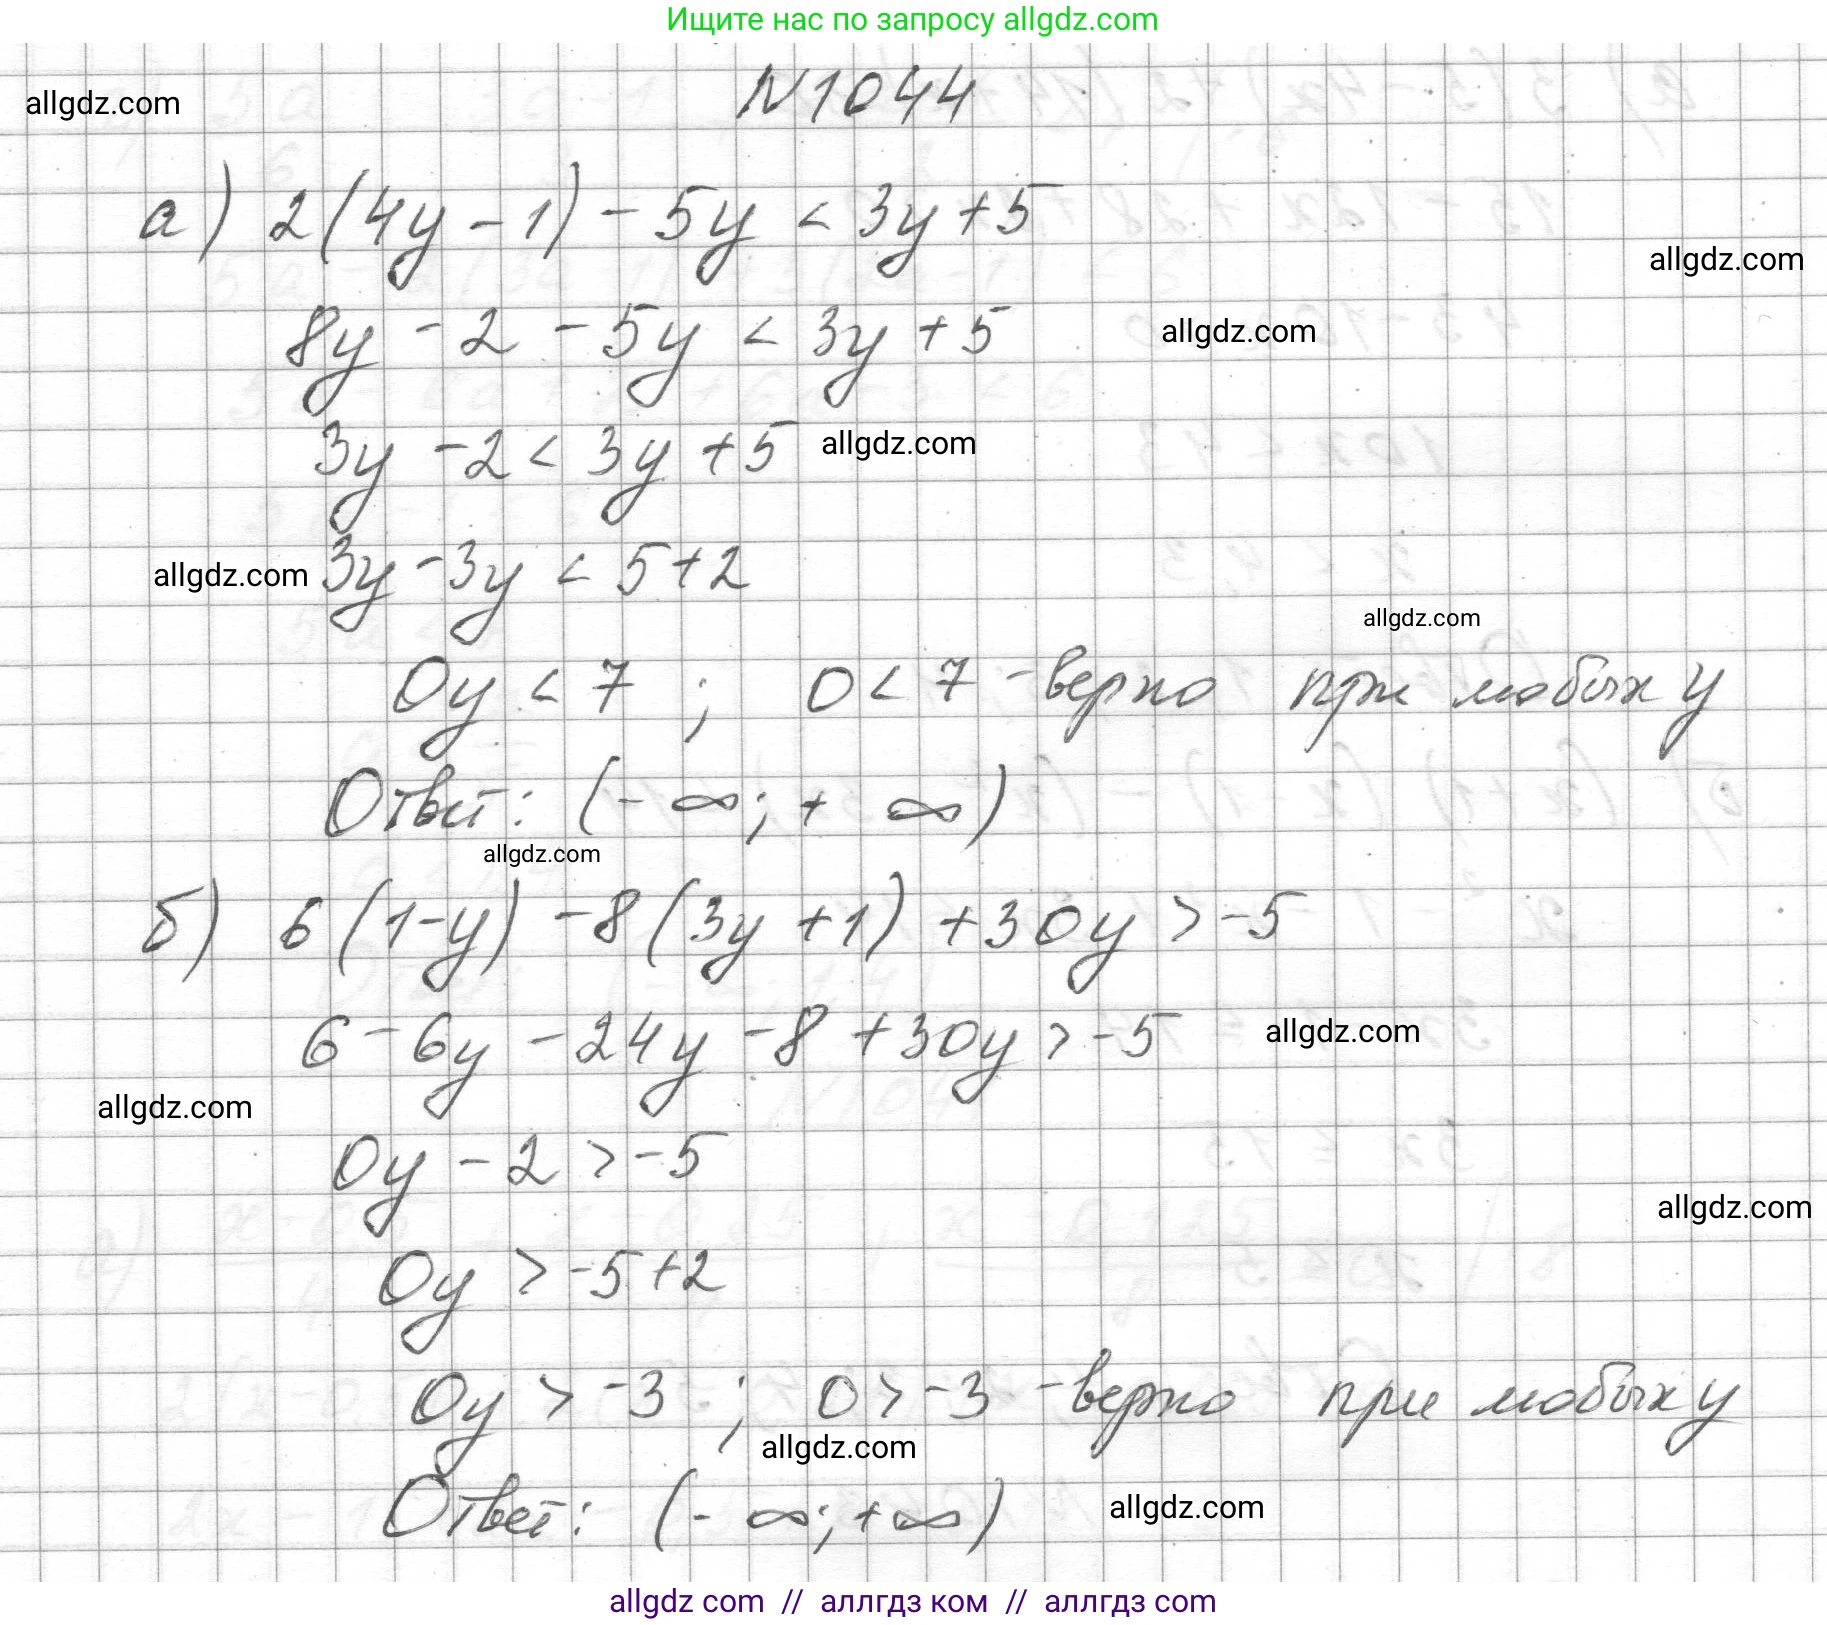 Ищите нас по запросу allgdz.com
N1044
allgdz.com
а) 2(4y - 1) - 5y < 3y + 5
allgdz.com
8y - 2 - 5y < 3y + 5
allgdz.com
3y - 2 < 3y + 5
allgdz.com
allgdz.com
3y - 3y < 5 + 2
allgdz.com
0y < 7 ; 0 < 7 - верно при любых y
Ответ: (- ∞; + ∞)
allgdz.com
б) 6(1-y) - 8(3y + 1) + 30y > -5
6 - 6y - 24y - 8 + 30y > -5
allgdz.com
allgdz.com
0y - 2 > -5
allgdz.com
0y > -5 + 2
0y > -3 ; 0 > -3 - верно при любых y
allgdz.com
Ответ: (- ∞; + ∞)
allgdz.com
allgdz com // аллгдз ком // аллгдз com